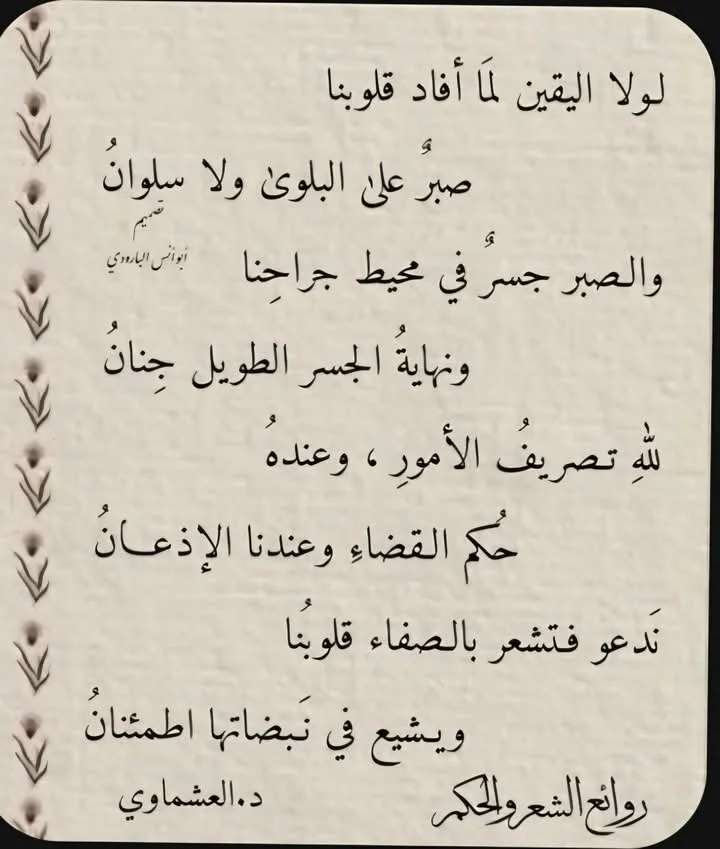 لولا اليقين لمَا أفاد قلوبنا
صبرٌ على البلوى ولا سلوانُ
تصميم
أبو أنس البارودي
والصبر جسرٌ في محيط جراحِنا
ونهايةُ الجسر الطويل جِنانُ
للهِ تصريفُ الأمورِ ، وعندهُ
حُكم القضاءِ وعندنا الإذعـانُ
نَدعو فتشعر بالصفاء قلوبُنا
ويشيع في نَبضاتها اطمئنانُ
روائع الشعر والحكم
د.العشماوي